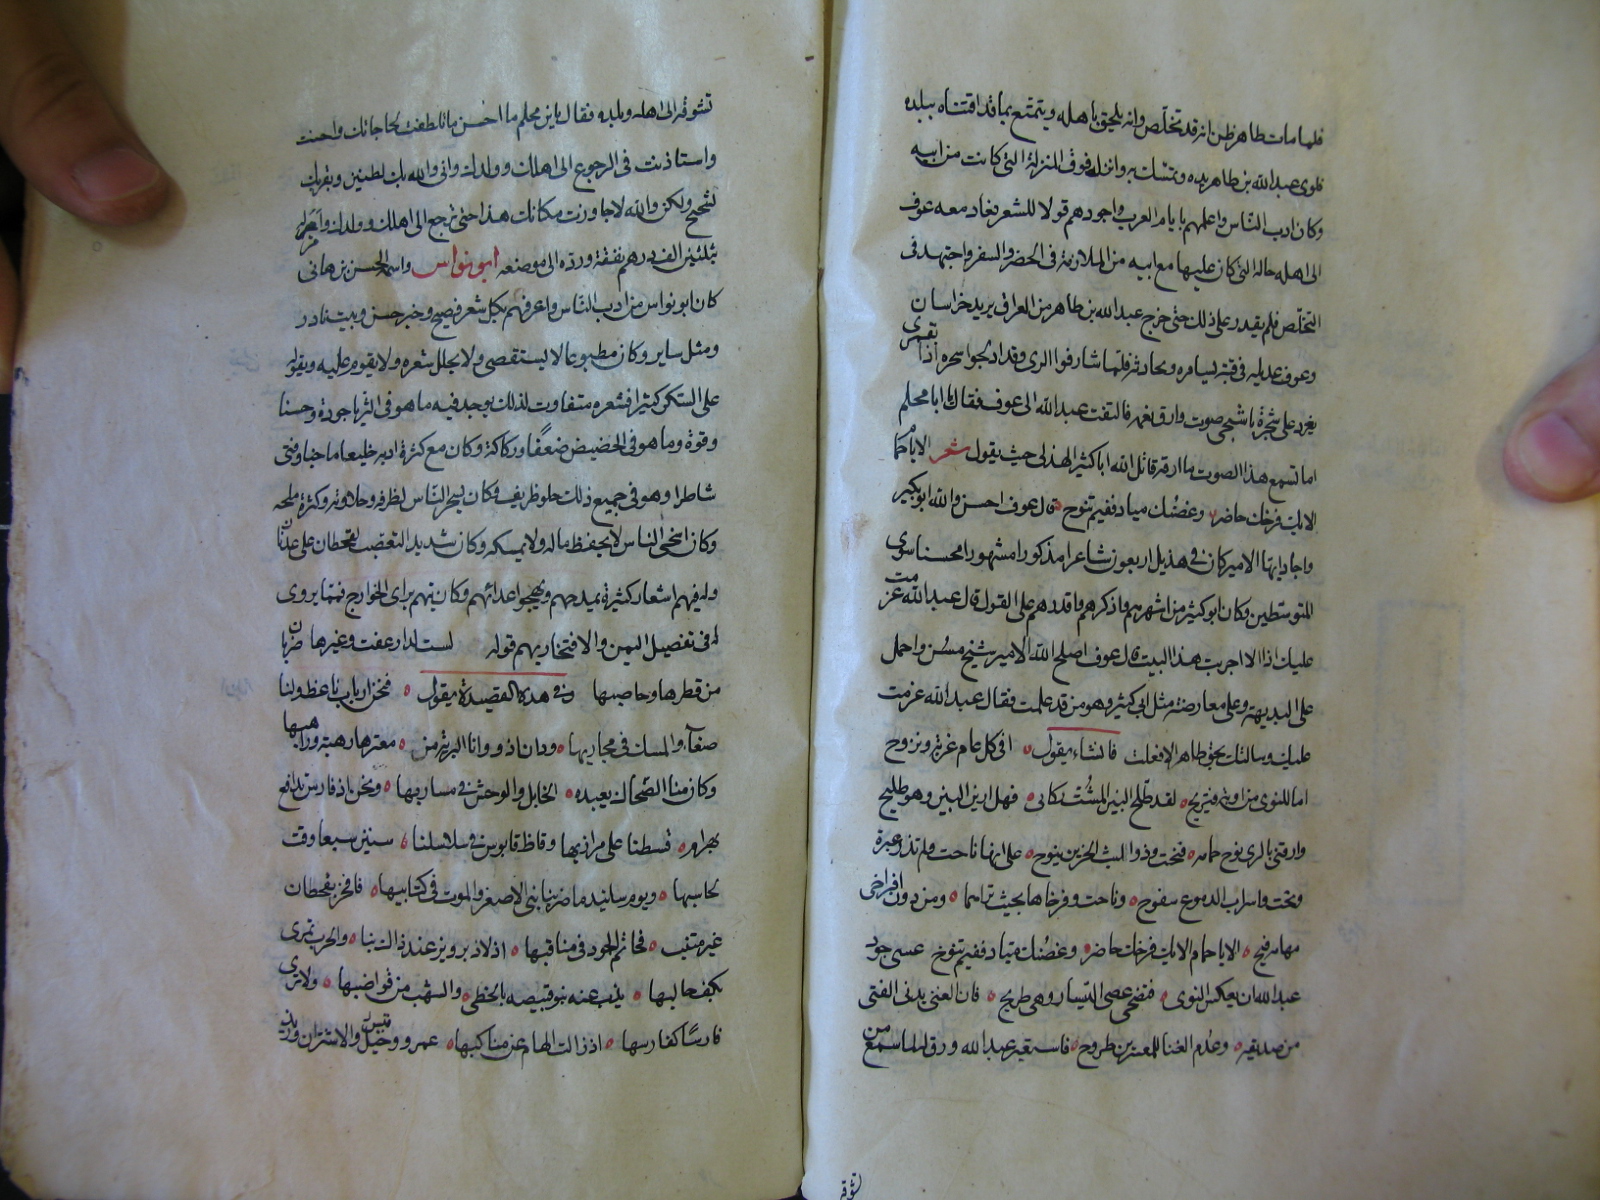 فلما مات طاهر ظن انه قد تخلّص وانه يلحق باهله ويتمتع بما قد اقتناه ببلده
فلوى عبدالله بن طاهر يده وتمسّك به وانزله فوق المنزلة التى كانت من ابيه
وكان ادب النّاس واعلمهم بايام العرب واجودهم قولا للشعر فعاد معه عوف
الى اهله حاله التى كان عليها مع ابيه من الملازمة فى الحضر والسفر واجتهد فى
التخلّص فلم يقدر على ذلك حتى خرج عبدالله بن طاهر من العراق يريد خراسان
وعوف عديله فى قبته يسامره ويحادثه فلمّا شارفوا الرى وقد ادلجوا سحره اذا بقمرى
يغرد على شجرة باشجى صوت وارق نغمه فالتفت عبدالله الى عوف فقال يا ابا محلم
اما تسمع هذا الصوت ما ارقه قاتل الله ابا كثير الهذلى حيث يقول شعر الا يا حمام
الايك فرخك حاضر وغصنك مياد ففيم تنوح قال عوف احسن والله ابو كبير
واجاد ايها الامير كان فى هذيل اربعون شاعرا مذكورا مشهورا محسنا سوى
المتوسطين وكان ابو كثير من اشهرهم واذكرهم واقدرهم على القول قال عبدالله عزمت
عليك اذا الا اجريت هذا البيت قال عوف اصلح الله الامير شيخ مسن واحمل
على البديهة وعلى معارضة مثل ابى كثير وهو من قد علمت فقال عبدالله عزمت
عليك وسالتك بحق طاهر الا فعلت فانشاء يقول افى كل عام غربة ونزوح
اما للنوى من اوبة فتريح لقد طلح البين المشت ركابى فهل ارين البين وهو طليح
وارقنى بالرى نوح حمامه فنحت وذو البث الحزين ينوح على انها ناحت ولم تذر عبرة
ونحت واسراب الدموع سفوح وناحت وفرخاها بحيث تراهما ومن دون افراخى
مهامه فيح الا يا حمام الايك فرخك حاضر وغصنك مياد ففيم تنوح عسى جود
عبدالله ان يعكس النوى فتضحى عصى التسيار وهى طريح فان الغنى يدنى الفتى
من صديقه وعدم الغنا للمعسرين طروح فاستعبر عبدالله ورق له لما سمع من
تشوقه
تشوقه الى اهله وبلده فقال يابن محلم ما احسن ما تلطفت لحاجاتك واحنت
واستاذنت فى الرجوع الى اهلك وولدك وانى والله بك لضنين وبقربك
لشحيح ولكن والله لا جاوزت مكانك هذا حتى ترجع الى اهلك وولدك وامر له
بثلثين الف درهم نفقة ورده الى موضعه ابو نواس واسمه الحسن بن هانى
كان ابو نواس من ادب النّاس واعرفهم بكل شعر فصيح وخبر حسن وبيت نادر
ومثل ساير وكان مطبوعا لا يستقصى ولا يحلل شعره ولا يقوم عليه ويقوله
على السكر كثيرا فشعره متفاوت لذلك يوجد فيه ما هو فى الثريا جودة وحسنا
وقوة وما هو فى الحضيض ضعفا وركاكة وكان مع كثرة ادبه خليعا ماجنا وفتى
شاطرا وهو فى جميع ذلك حلو ظريف وكان يسحر النّاس لظرفه وحلاوته وكثرة ملحه
وكان اسخى الناس لا يحفظ ماله ولا يمسكه وكان شديد التعصب لقحطان على عدنان
وله فيهم اشعار كثيرة يمدحهم ويهجوا اعدائهم وكان يتهم براى الخوارج فمما يروى
له فى تفضيل اليمن والافتخار بهم قوله لست لدار عفت وغيرها ضربان
من قطرها وحاصبها وفى هذه القصيدة يقول فنحن ارباب ناعط ولنا
صنعآء والمسك فى محاريبها ودان اذواؤنا البرية من معترها رهبة وراهبها
وكان منا الضحاك يعبده الخابل والوحش فى مساربها ونحن اذ فارس تدافع
بهرام قسطنا على مرازبها وقاظ قابوس فى سلاسلنا سنين سبعا وقت
لحاسبها ويوم ساتيدما ضربنا بنى الاصفر والموت فى كتايبها فافخر بقحطان
غير متئب فحاتم الجود فى مناقبها اذ لاذ برويز عند ذاك بنا والحرب تمرى
بكف حالبها يذب عنه بنو قبيصه بالخطى والشهب من قواضبها ولا ترى
فارسًا كفارسها اذ زالت الهام عن مناكبها عمرو وقيس والاشتران وزيد